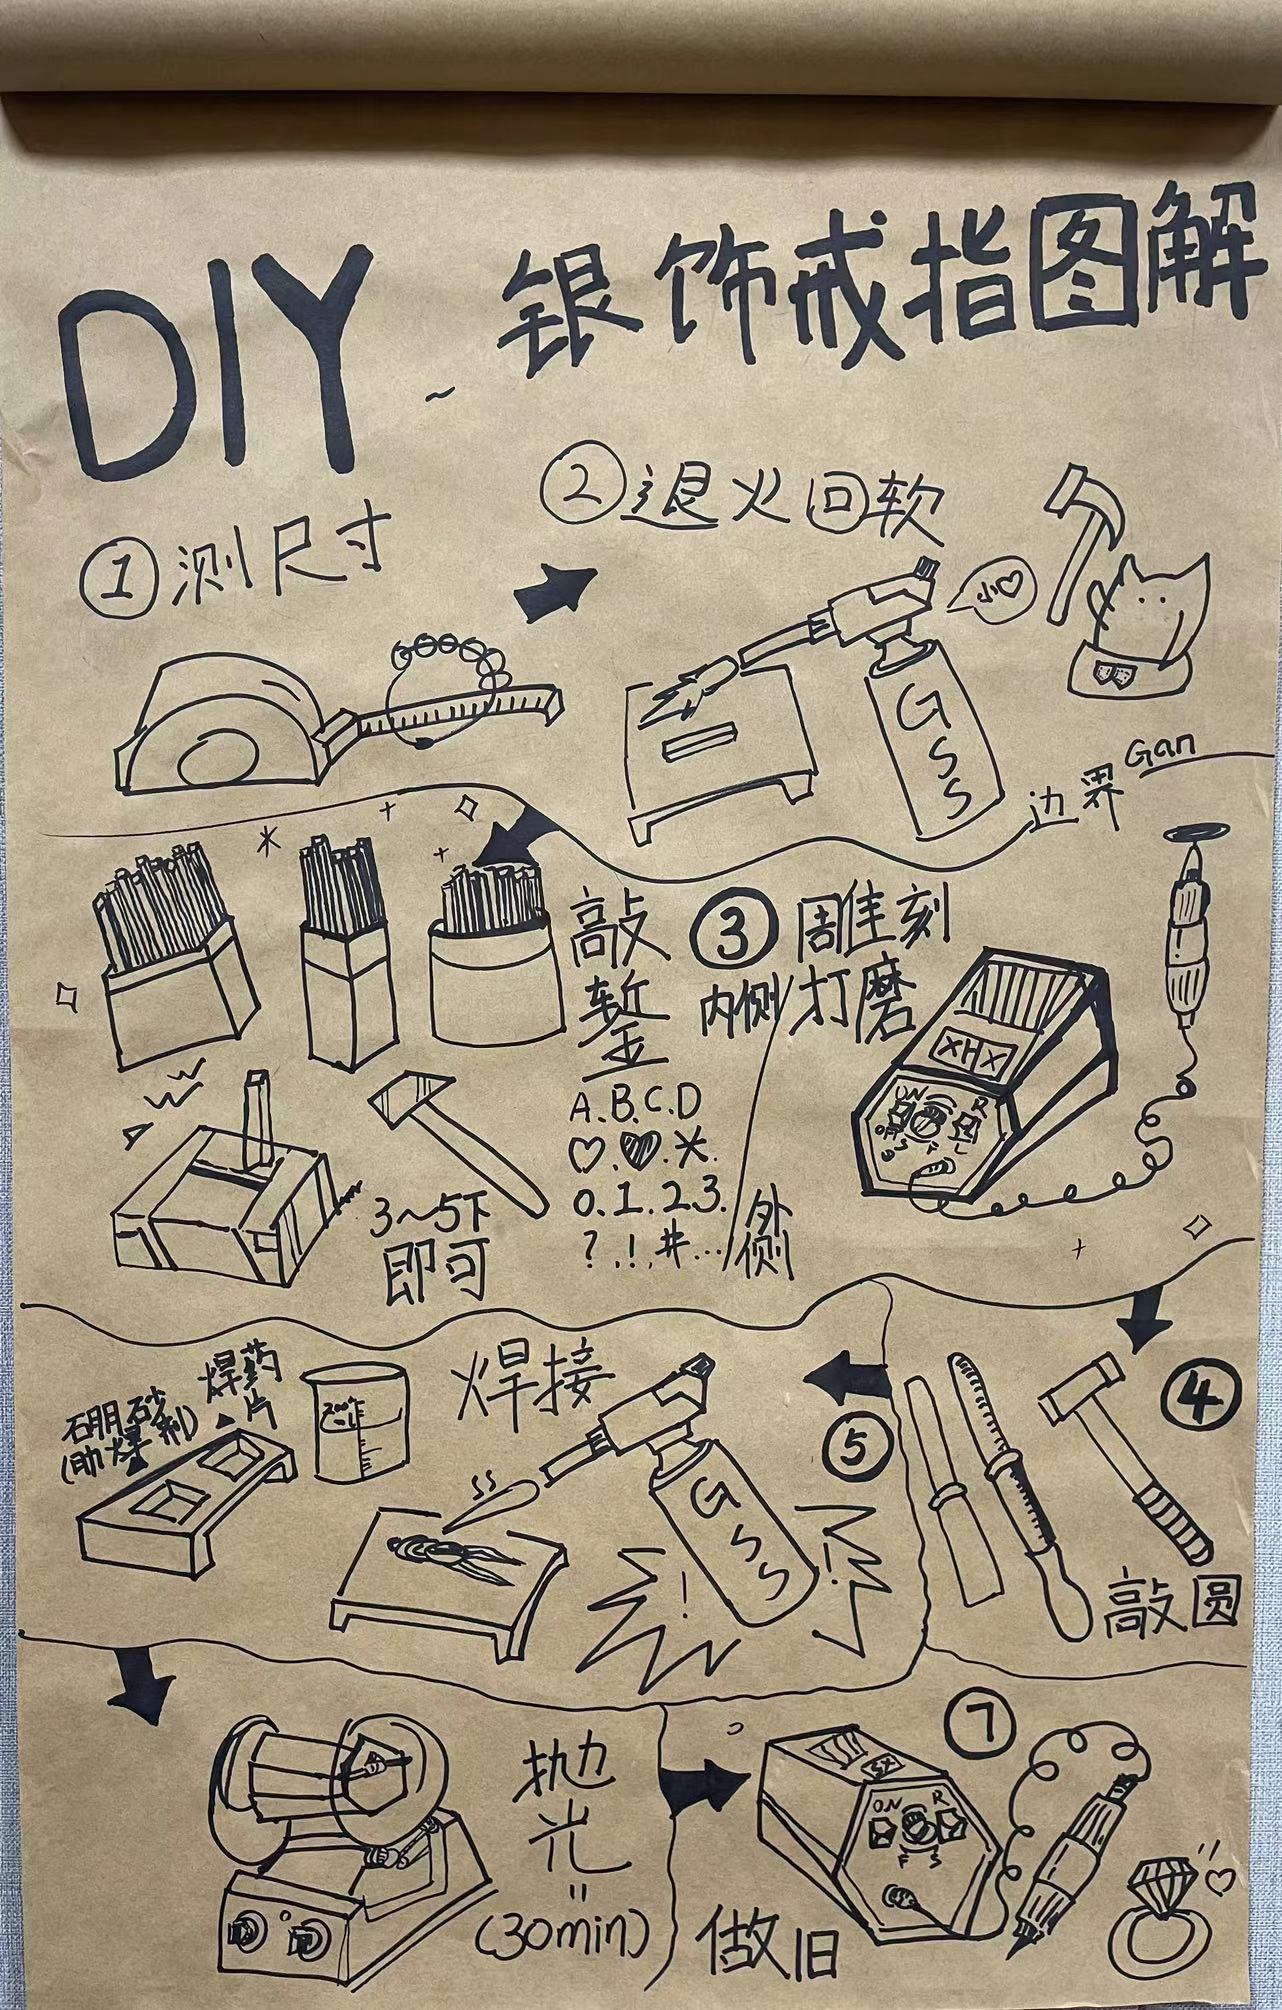 DIY ~ 银饰戒指图解
① 测尺寸
② 退火回软
小♡
GSS
边界 Gan
敲錾
A.B.C.D
♡.♥.*.
0.1.2.3.
?.!.#...
3~5下
即可
③
内侧/
雕刻
打磨
外侧
XHX
ON
R
OFF
S F L
④
敲圆
⑤
焊接
焊药片
硼砂
(助焊剂)
200
GSS
!
!
抛光
(30min)
⑦
做旧
SX
ON
R
F S